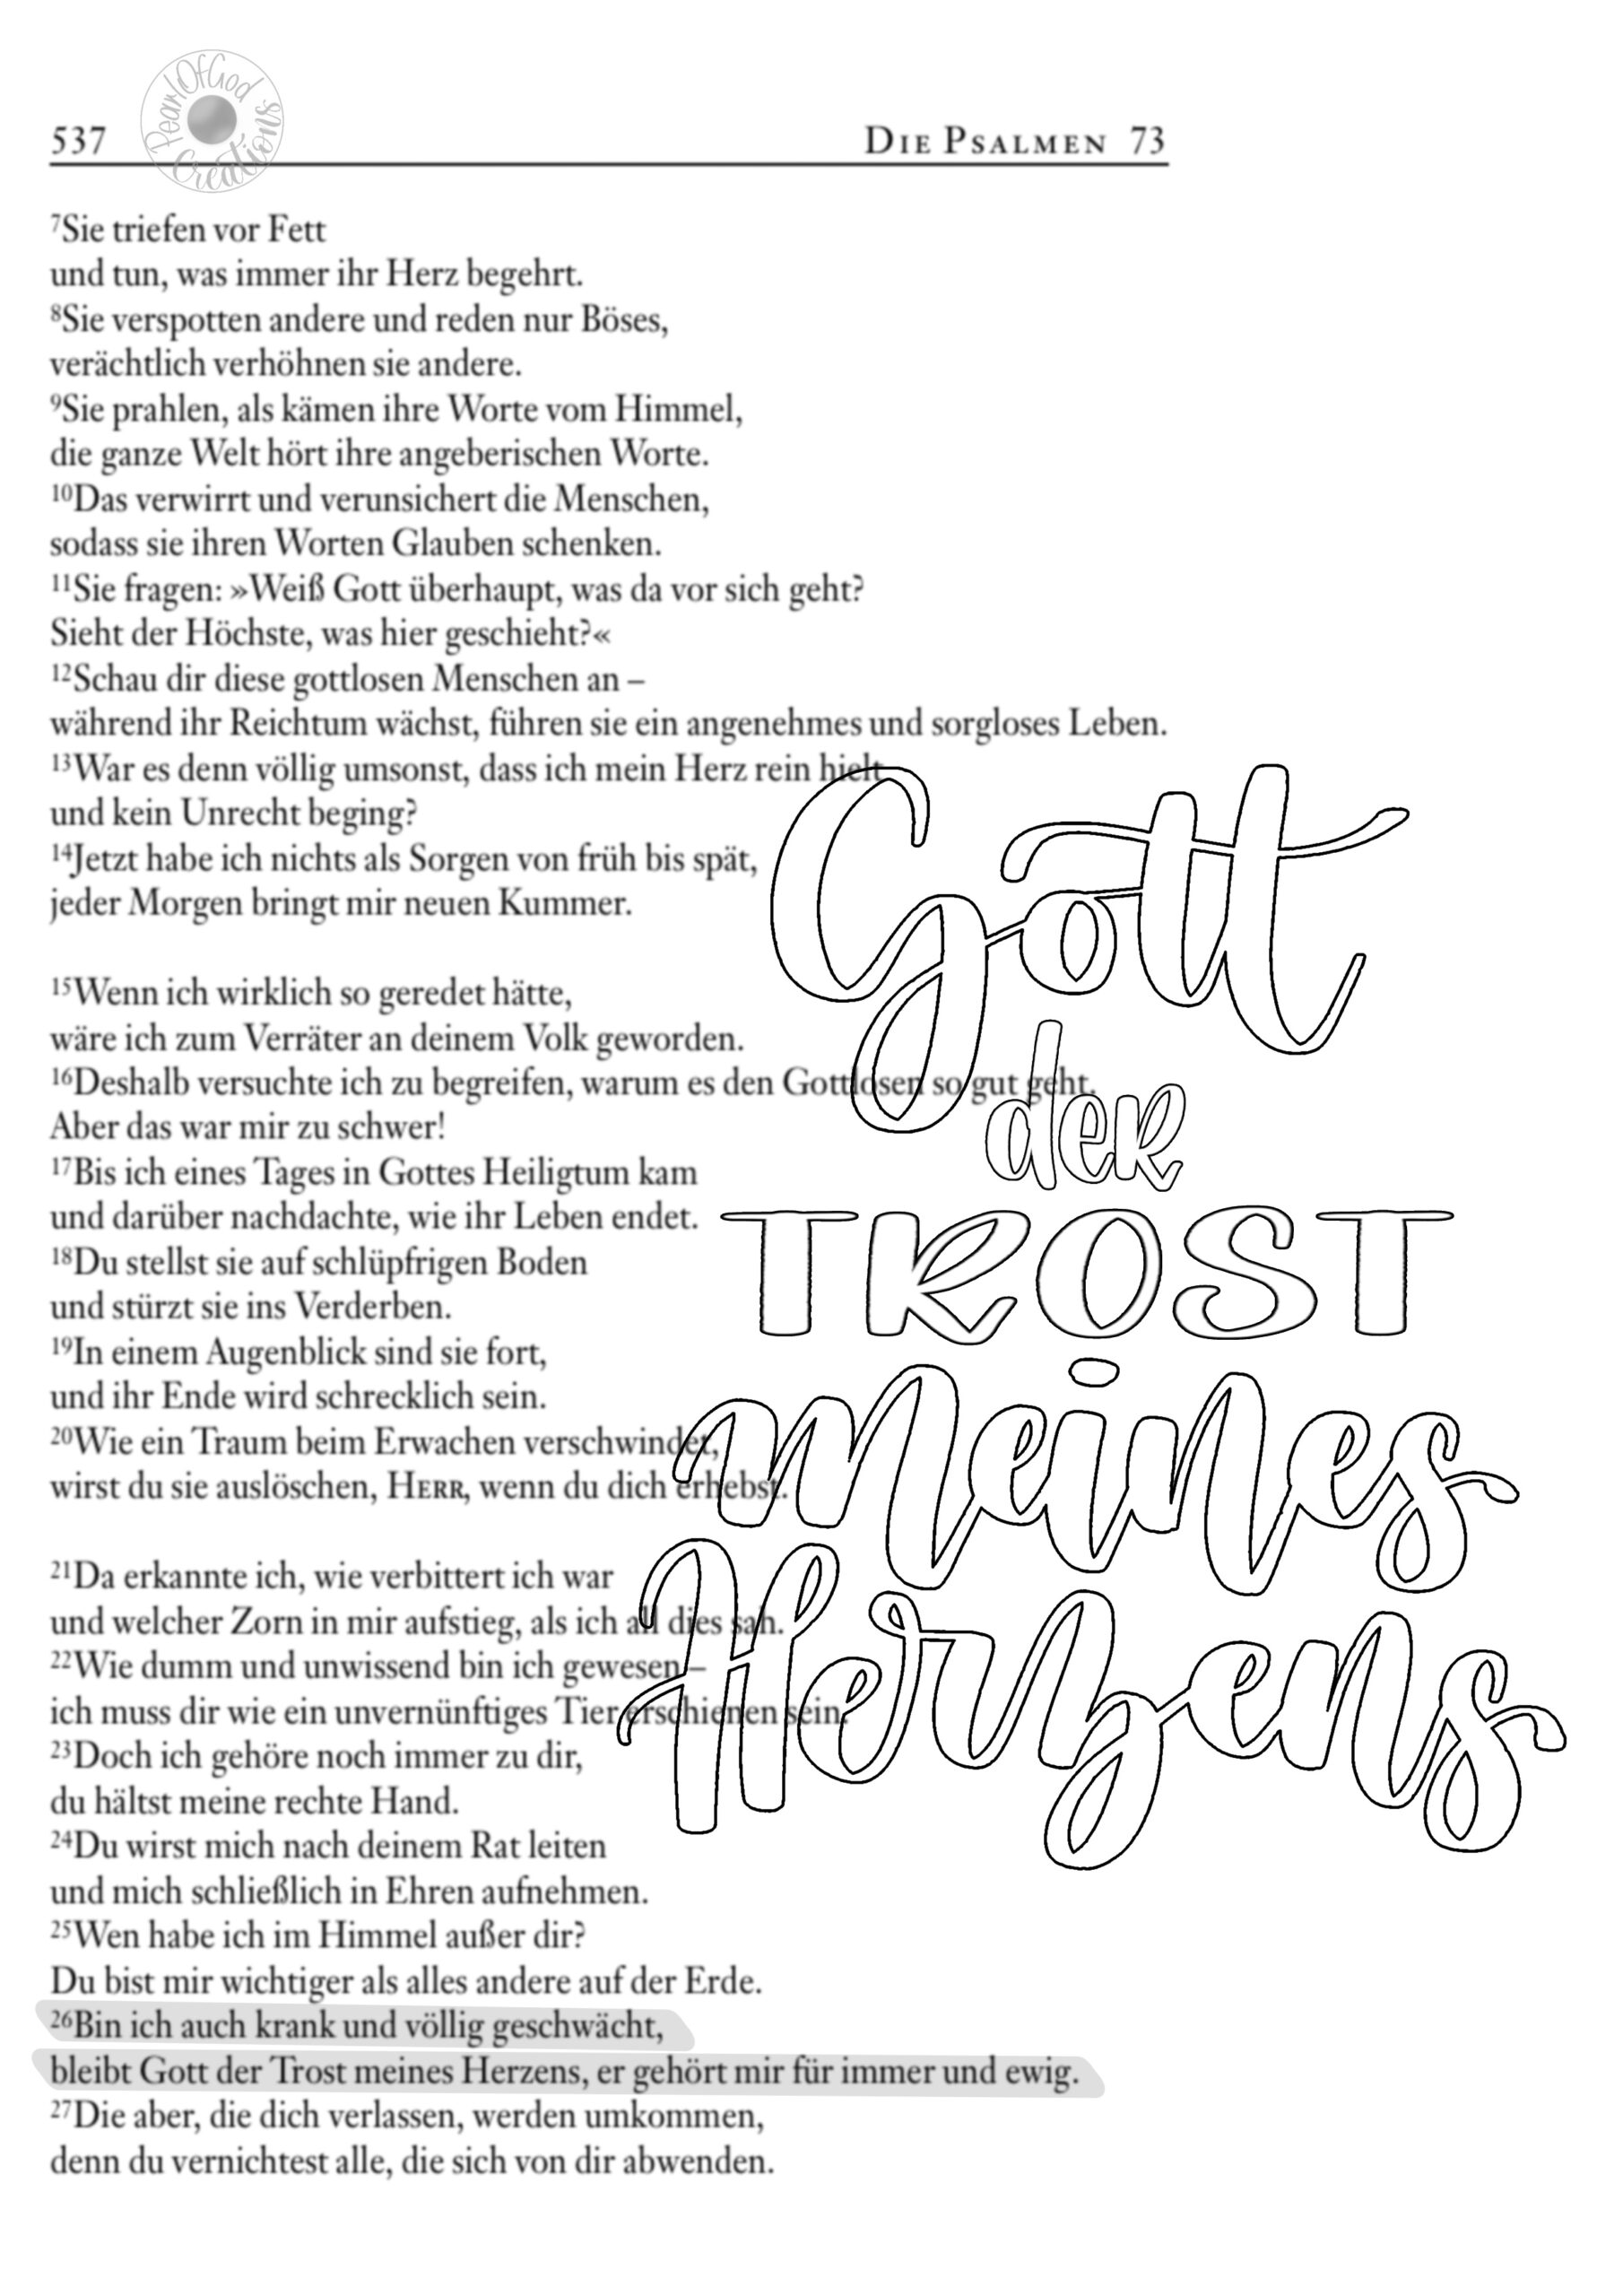 PearlOfGod
Creations
537
DIE PSALMEN 73
7Sie triefen vor Fett
und tun, was immer ihr Herz begehrt.
8Sie verspotten andere und reden nur Böses,
verächtlich verhöhnen sie andere.
9Sie prahlen, als kämen ihre Worte vom Himmel,
die ganze Welt hört ihre angeberischen Worte.
10Das verwirrt und verunsichert die Menschen,
sodass sie ihren Worten Glauben schenken.
11Sie fragen: »Weiß Gott überhaupt, was da vor sich geht?
Sieht der Höchste, was hier geschieht?«
12Schau dir diese gottlosen Menschen an –
während ihr Reichtum wächst, führen sie ein angenehmes und sorgloses Leben.
13War es denn völlig umsonst, dass ich mein Herz rein hielt
und kein Unrecht beging?
14Jetzt habe ich nichts als Sorgen von früh bis spät,
jeder Morgen bringt mir neuen Kummer.
15Wenn ich wirklich so geredet hätte,
wäre ich zum Verräter an deinem Volk geworden.
16Deshalb versuchte ich zu begreifen, warum es den Gottlosen so gut geht.
Aber das war mir zu schwer!
17Bis ich eines Tages in Gottes Heiligtum kam
und darüber nachdachte, wie ihr Leben endet.
18Du stellst sie auf schlüpfrigen Boden
und stürzt sie ins Verderben.
19In einem Augenblick sind sie fort,
und ihr Ende wird schrecklich sein.
20Wie ein Traum beim Erwachen verschwindet,
wirst du sie auslöschen, HERR, wenn du dich erhebst.
21Da erkannte ich, wie verbittert ich war
und welcher Zorn in mir aufstieg, als ich all dies sah.
22Wie dumm und unwissend bin ich gewesen –
ich muss dir wie ein unvernünftiges Tier erschienen sein.
23Doch ich gehöre noch immer zu dir,
du hältst meine rechte Hand.
24Du wirst mich nach deinem Rat leiten
und mich schließlich in Ehren aufnehmen.
25Wen habe ich im Himmel außer dir?
Du bist mir wichtiger als alles andere auf der Erde.
26Bin ich auch krank und völlig geschwächt,
bleibt Gott der Trost meines Herzens, er gehört mir für immer und ewig.
27Die aber, die dich verlassen, werden umkommen,
denn du vernichtest alle, die sich von dir abwenden.
Gott
der
TROST
meines
Herzens